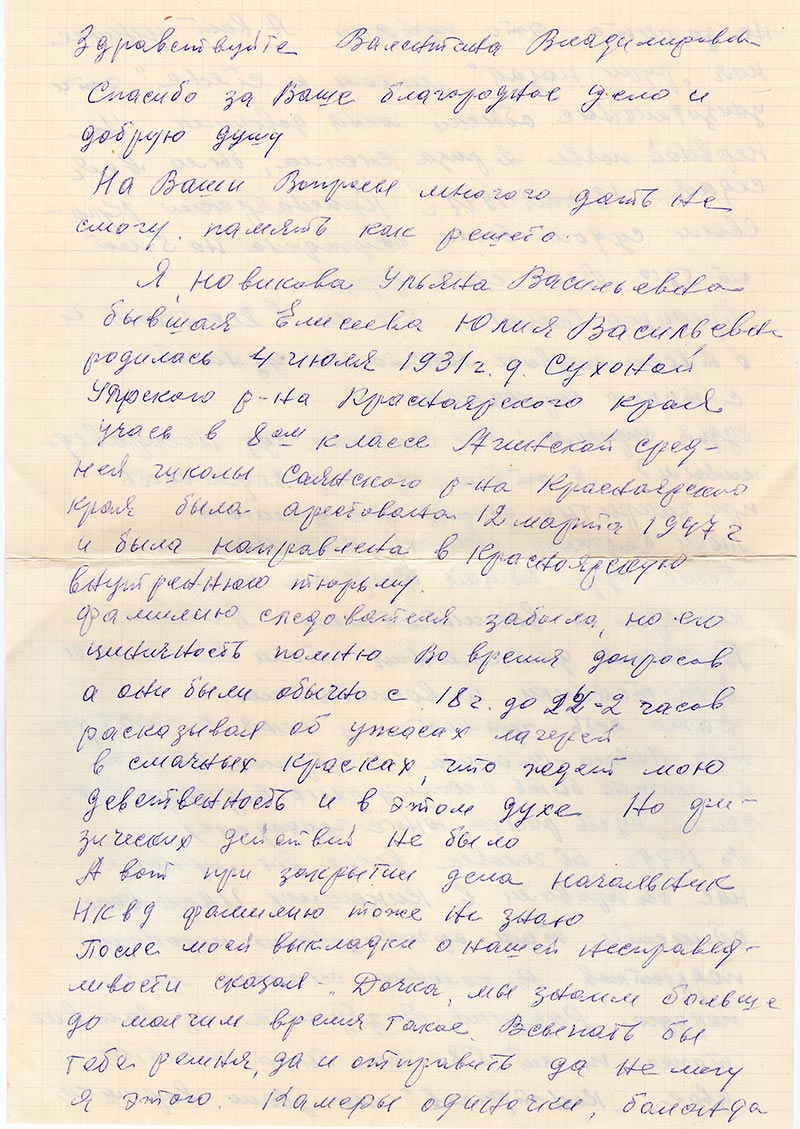 Здравствуйте Валентина Владимировна
Спасибо за Ваше благородное дело и
добрую душу
На Ваши Вопросы многого дать не
смогу. память как решето.
Я, Новикова Ульяна Васильевна
бывшая Елисеева Юлия Васильевна
родилась 4 июля 1931 г. д. Сухоной
Уярского р-на Красноярского края
учась в 8ом классе Агинской сред-
ней школы Саянского р-на Красноярского
края была арестована 12 марта 1947 г
и была направлена в Красноярскую
внутреннюю тюрьму.
фамилию следователя забыла, но его
циничность помню Во время допросов
а они были обычно с 18 г. до -2 часов
расказывая об ужасах лагерей
в смачных красках, что ждет мою
девственность и в этом духе Но фи-
зических действий не было
А вот при закрытии дела начальник
НКВД фамилию тоже не знаю
После моей выкладки о нашей несправед-
ливости сказал „Дочка, мы знаем больше
да молчим время такое Всыпать бы
тебе ремня, да и отправить да не могу
я этого. Камеры одиночки, баланда